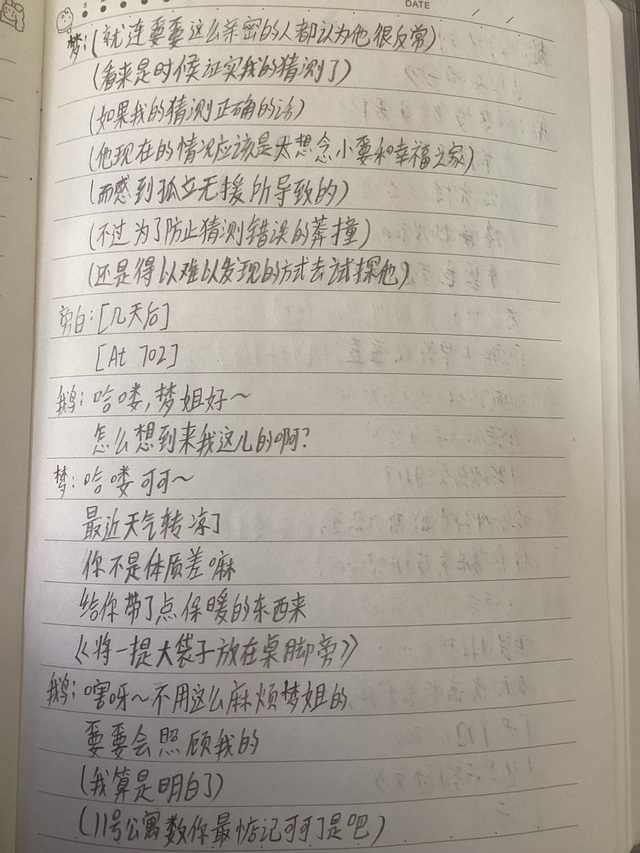 DATE
梦:(就连要要这么亲密的人都认为他很反常)
(看来是时候证实我的猜测了)
(如果我的猜测正确的话)
(他现在的情况应该是太想念小要和幸福之家)
(而感到孤立无援所导致的)
(不过为了防止猜测错误的莽撞)
(还是得以难以发现的方式去试探他)
旁白:[几天后]
[At 702]
鹅:哈喽,梦姐好~
怎么想到来我这儿的啊?
梦:哈喽可可~
最近天气转凉了
你不是体质差嘛
给你带了点保暖的东西来
《将一提大袋子放在桌脚旁》
鹅:嗐呀~不用这么麻烦梦姐的
要要会照顾我的
(我算是明白了)
(11号公寓数你最惦记可可了是吧)